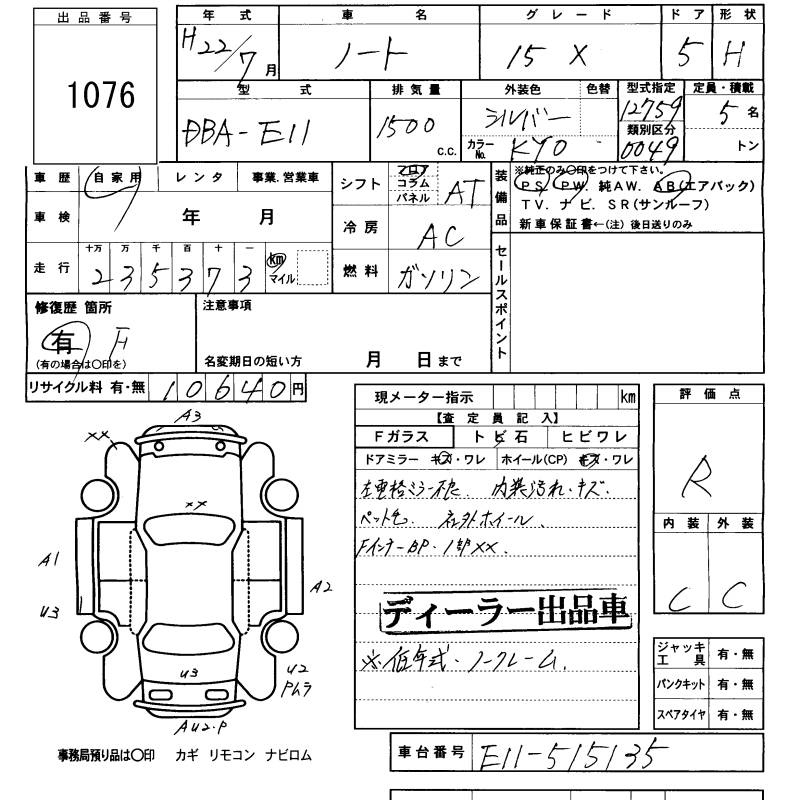 出品番号
1076
年式 車名 グレード ドア 形状
H22/7月 ノート 15 X 5 H
型式 排気量 外装色 色替 型式指定 定員・積載
DBA-E11 1500 c.c. シルバー 12759 5名
カラーNo. KY0 類別区分 0049 トン
車歴 自家用 レンタ 事業.営業車
シフト フロア コラム パネル AT
装備品 ※純正のみ○印をつけて下さい。
PS PW 純AW. AB(エアバック)
TV. ナビ. SR(サンルーフ)
新車保証書←(注) 後日送りのみ
車検 年 月
冷房 AC
走行 十万 万 千 百 十 一
2 3 5 3 7 3 km マイル
燃料 ガソリン
セールスポイント
修復歴 箇所
有 F
(有の場合は○印を)
注意事項
名変期日の短い方 月 日まで
リサイクル料 有・無 10640円
現メーター指示 km
【査定員記入】
Fガラス トビ石 ヒビワレ
ドアミラー キズ・ワレ ホイール(CP) キズ・ワレ
左電格ミラー破. 内装汚れ・キズ.
ペット色. 社外ホイール.
FインナーBP・1部××.
ディーラー出品車
※低年式・ノークレーム.
評価点
R
内装 外装
C C
ジャッキ工具 有・無
パンクキット 有・無
スペアタイヤ 有・無
A3
××
××
A1
U3
A2
U3
U2
AU2・P
事務局預り品は○印 カギ リモコン ナビロム
車台番号 E11-515135